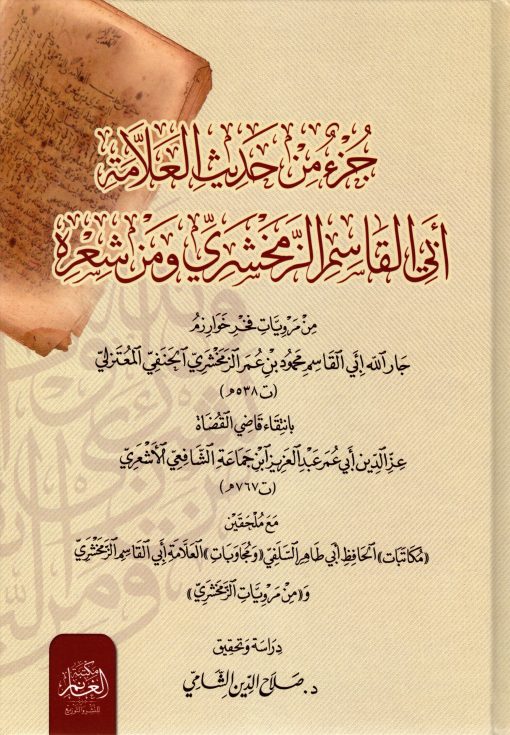 جُزْءٌ مِنْ حَدِيثِ الْعَلَّامَةِ
أَبِي الْقَاسِمِ الزَّمَخْشَرِيِّ وَمِنْ شِعْرِهِ
مِنْ مَرْوِيَّاتِ فَخْرِ خَوَارِزْمُ
جَارِ اللهِ أَبِي الْقَاسِمِ مَحْمُودِ بْنِ عُمَرَ الزَّمَخْشَرِيِّ الْحَنَفِيِّ الْمُعْتَزِلِيِّ
(ت٥٣٨هـ)
بِانْتِقَاءِ قَاضِي الْقُضَاةِ
عِزِّ الدِّينِ أَبِي عُمَرَ عَبْدِ الْعَزِيزِ ابْنِ جَمَاعَةَ الشَّافِعِيِّ الْأَشْعَرِيِّ
(ت٧٦٧هـ)
مَعَ مُلْحَقَيْنِ
«مُكَاتَبَات» الْحَافِظِ أَبِي طَاهِرِ السِّلَفِيِّ «وَمُجَاوَبَات» الْعَلَّامَةِ أَبِي الْقَاسِمِ الزَّمَخْشَرِيِّ
وَ«مِنْ مَرْوِيَّاتِ الزَّمَخْشَرِيِّ»
دِرَاسَة وَتَحْقِيق
د. صَلَاحُ الدِّينِ الشَّامِيِّ
مكتبة
الغانم
للنشر والتوزيع